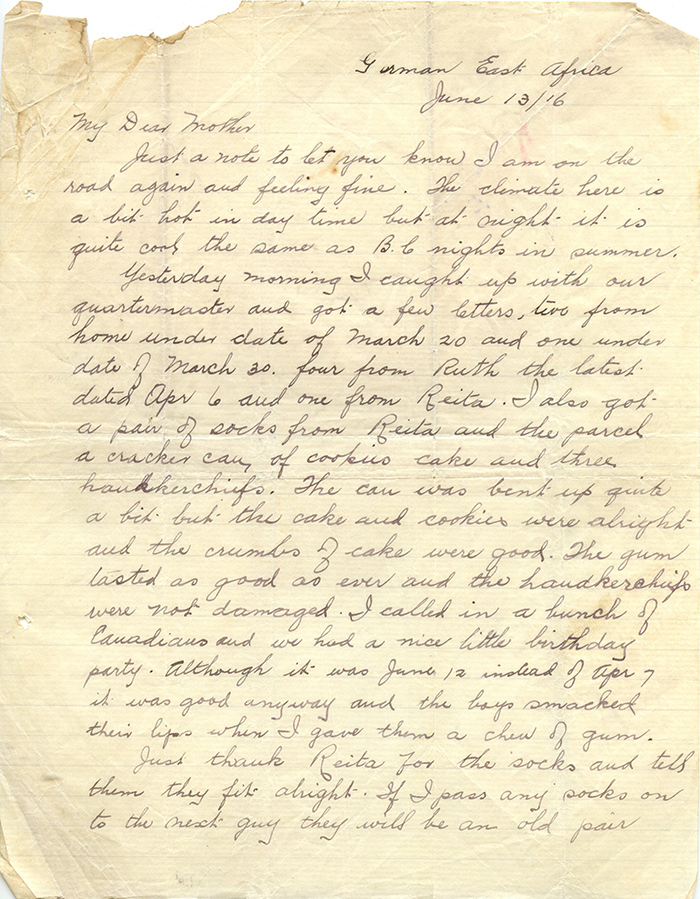 German East Africa
June 13/16
My Dear Mother
Just a note to let you know I am on the
road again and feeling fine. The climate here is
a bit hot in day time but at night it is
quite cool the same as B.C nights in summer.
Yesterday morning I caught up with our
quartermaster and got a few letters, two from
home under date of March 20 and one under
date of March 30. four from Ruth the latest
dated Apr 6 and one from Reita. I also got
a pair of socks from Reita and the parcel
a cracker can, of cookies cake and three
handkerchiefs. The can was bent up quite
a bit but the cake and cookies were alright
and the crumbs of cake were good. The gum
tasted as good as ever and the handkerchiefs
were not damaged. I called in a bunch of
Canadians and we had a nice little birthday
party. Although it was June 12 instead of Apr 7
it was good anyway and the boys smacked
their lips when I gave them a chew of gum.
Just thank Reita for the socks and tell
them they fit alright. If I pass any socks on
to the next guy they will be an old pair